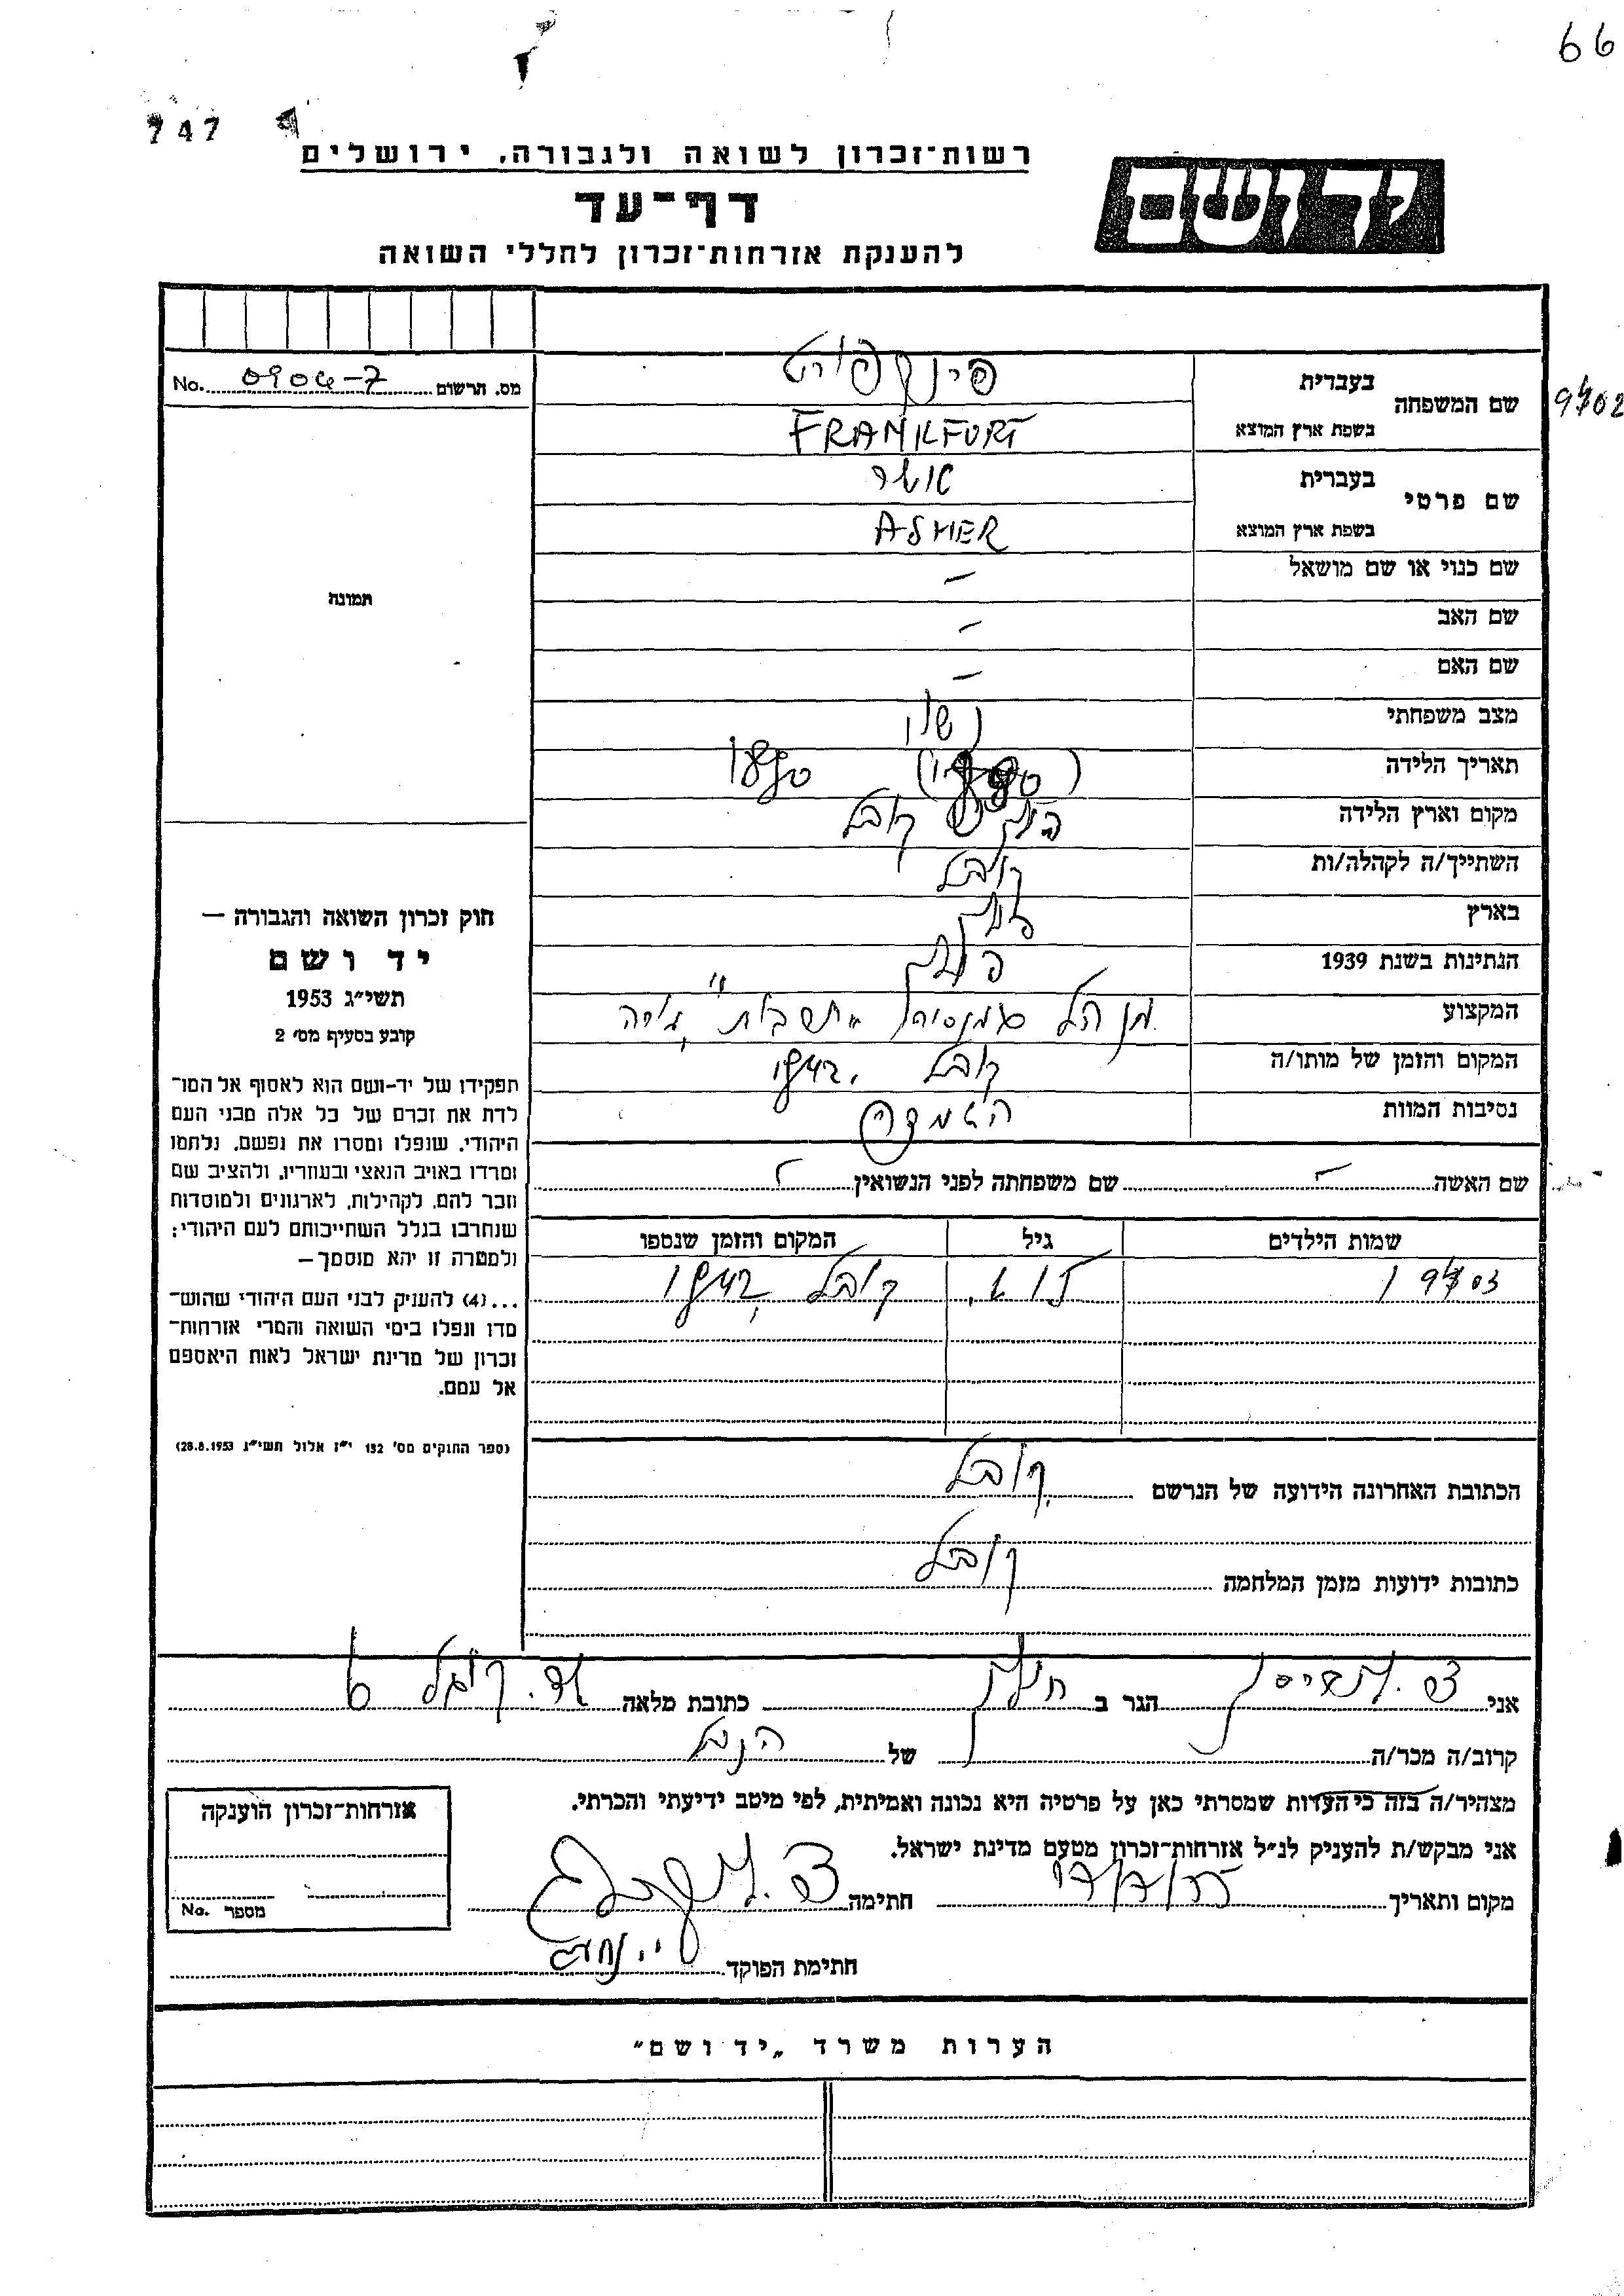 66
747
רשות־זכרון לשואה ולגבורה, ירושלים
יד ושם
דף־עד
להענקת אזרחות־זכרון לחללי השואה
מס. הרשום 0904-7 No.
שם המשפחה
בעברית
בשפת ארץ המוצא FRANKFURT
שם פרטי
בעברית אשר
בשפת ארץ המוצא ASHER
שם כנוי או שם מושאל –
שם האב –
שם האם –
מצב משפחתי נשוי
תאריך הלידה 1890
מקום וארץ הלידה פולין קובל
השתייך/ה לקהלה/ות קובל
בארץ פולין
הנתינות בשנת 1939 פולין
המקצוע מנהל גמנסיה "תרבות"
המקום והזמן של מותו/ה קובל 1942
נסיבות המוות השמדה
שם האשה – שם משפחתה לפני הנשואין
שמות הילדים גיל המקום והזמן שנספו
קובל, 1942
הכתובת האחרונה הידועה של הנרשם קובל
כתובות ידועות מזמן המלחמה קובל
תמונה
חוק זכרון השואה והגבורה —
יד ושם
תשי״ג 1953
קובע בסעיף מס׳ 2
תפקידו של יד-ושם הוא לאסוף אל המו־
לדת את זכרם של כל אלה מבני העם
היהודי, שנפלו ומסרו את נפשם, נלחמו
ומרדו באויב הנאצי ובעוזריו, ולהציב שם
וזכר להם, לקהילות, לארגונים ולמוסדות
שנחרבו בגלל השתייכותם לעם היהודי;
ולמטרה זו יהא מוסמך—
...(4) להעניק לבני העם היהודי שהוש־
מדו ונפלו בימי השואה והמרי אזרחות־
זכרון של מדינת ישראל לאות היאספם
אל עמם.
(ספר החוקים מס׳ 132 י״ז אלול תשי״ג 28.8.1953)
אני הגר ב כתובת מלאה קובל 6
קרוב/ה מכר/ה של הנ״ל
מצהיר/ה בזה כי העדות שמסרתי כאן על פרטיה היא נכונה ואמיתית, לפי מיטב ידיעתי והכרתי.
אני מבקש/ת להעניק לנ״ל אזרחות־זכרון מטעם מדינת ישראל.
מקום ותאריך חתימה
חתימת הפוקד
אזרחות־זכרון הוענקה
מספר No.
הערות משרד „יד ושם״